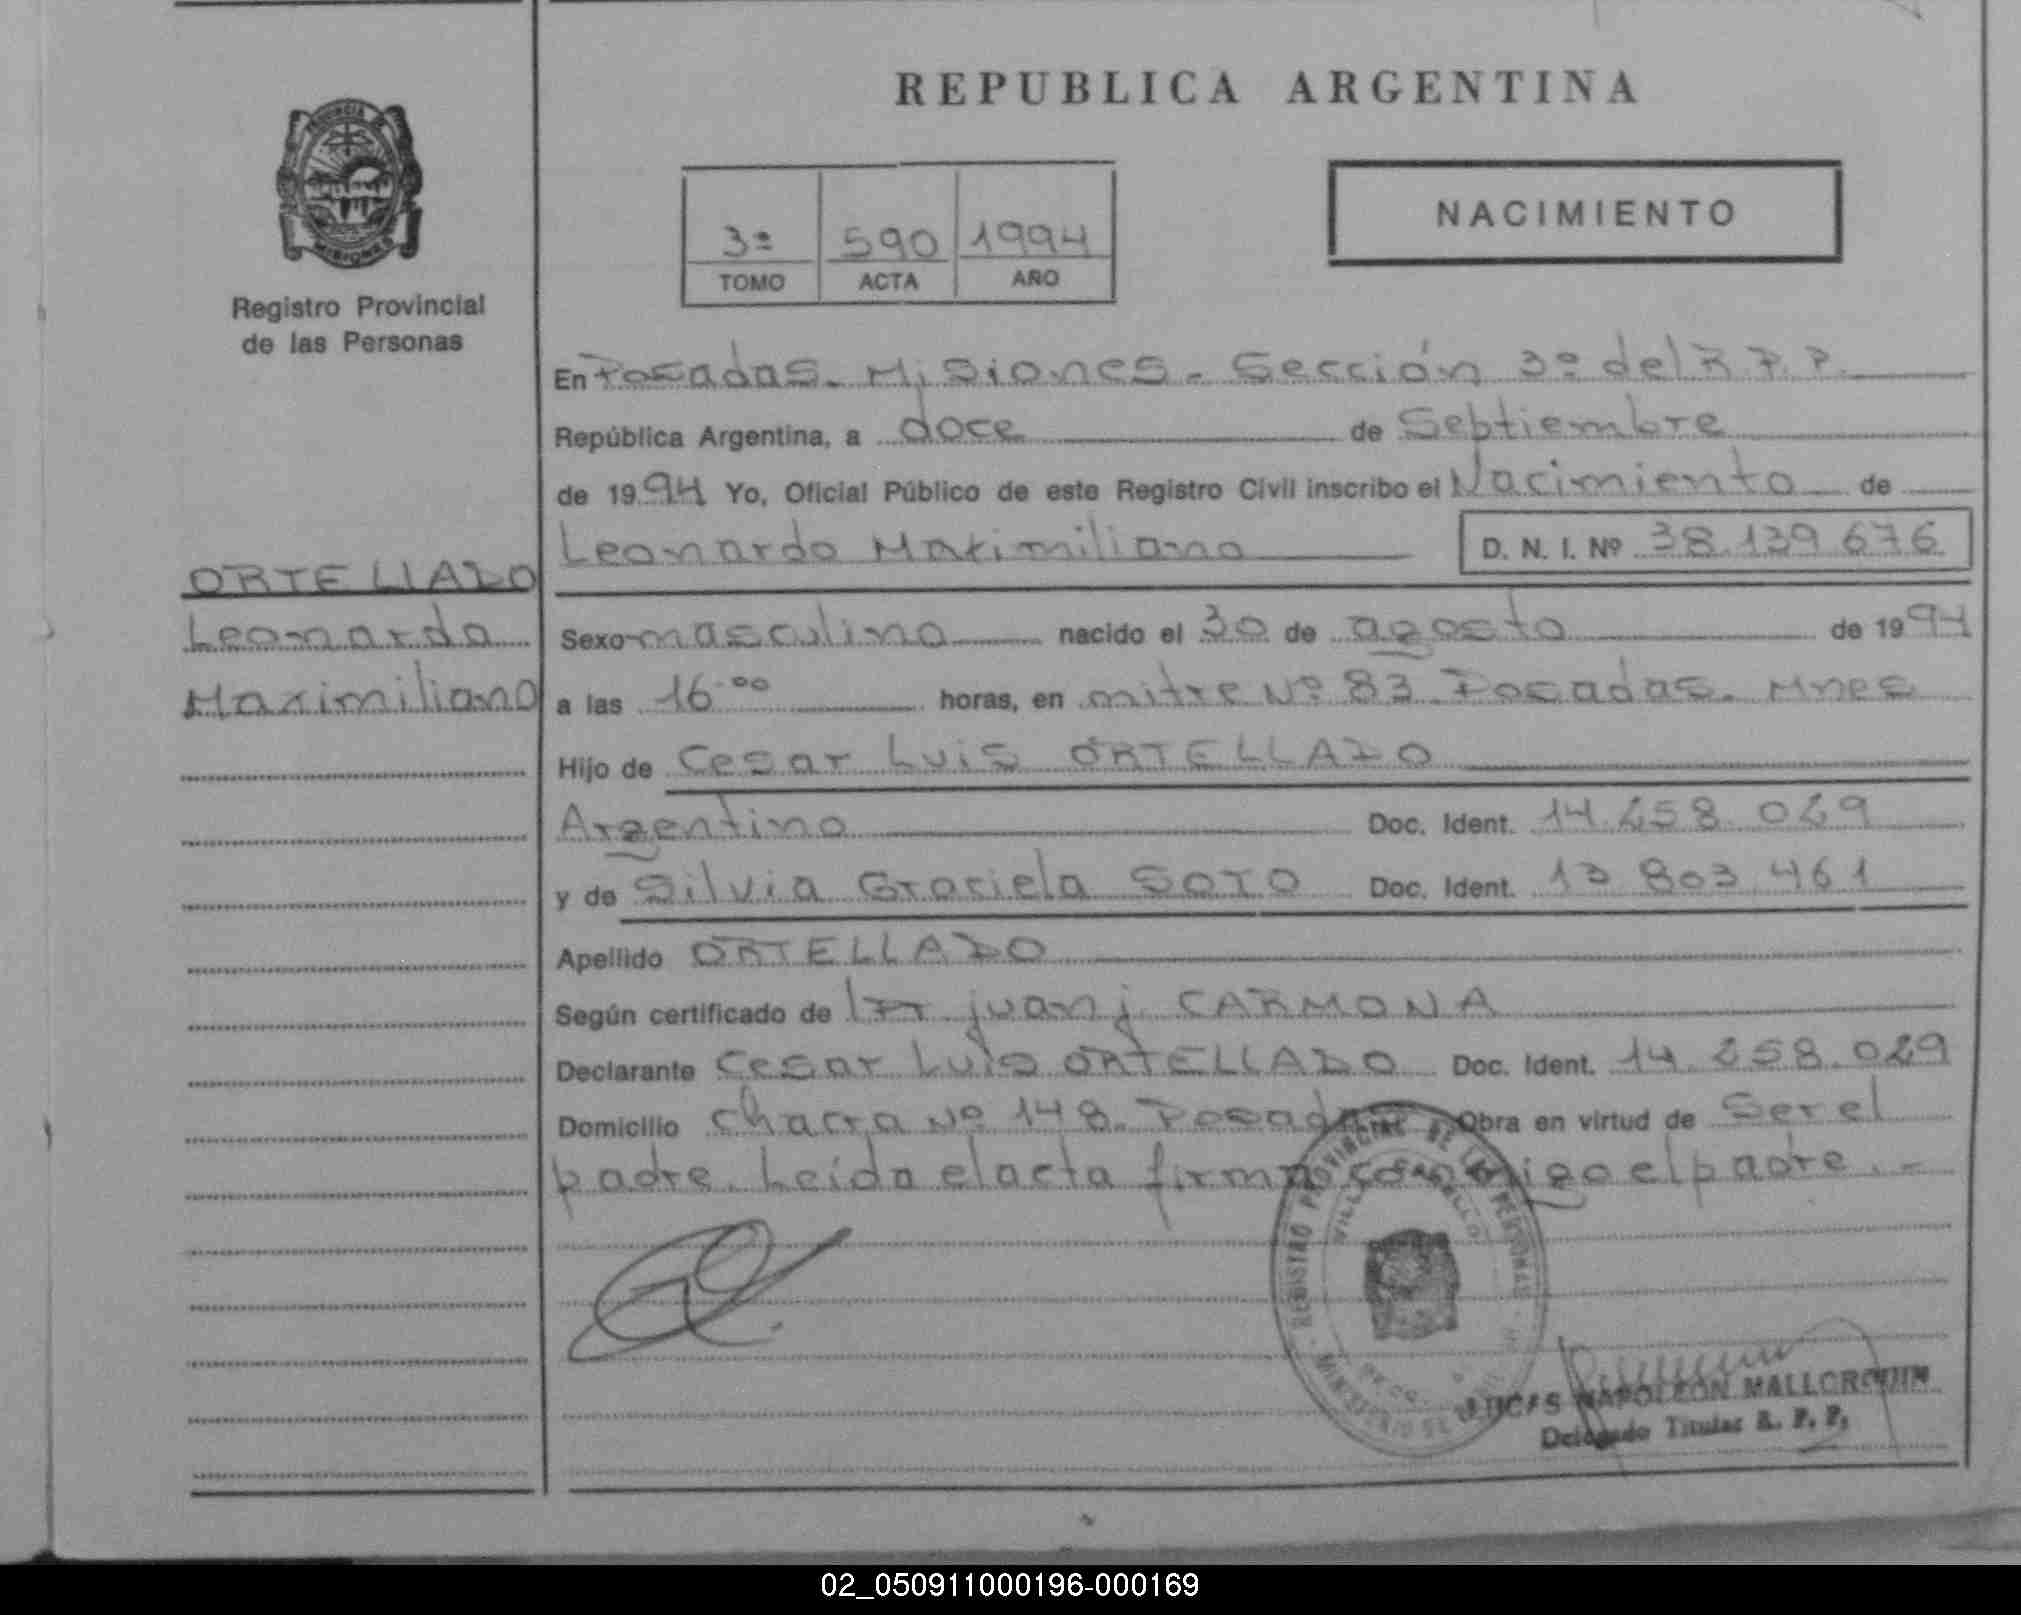 REPUBLICA ARGENTINA
PROVINCIA DE
MISIONES
Registro Provincial
de las Personas
3ª 590 1994
TOMO ACTA AÑO
NACIMIENTO
En Posadas. Misiones. Sección 3ª del R.P.P.
República Argentina, a doce de Septiembre
de 1994 Yo, Oficial Público de este Registro Civil inscribo el Nacimiento de
Leonardo Maximiliano D. N. I. Nº 38.139.676
ORTELLADO
Leonardo
Maximiliano
Sexo masculino nacido el 30 de agosto de 1994
a las 16.00 horas, en mitre Nº 83. Posadas. Mnes
Hijo de Cesar Luis ORTELLADO
Argentino Doc. Ident. 14.258.029
y de Silvia Graciela SOTO Doc. Ident. 13 803 461
Apellido ORTELLADO
Según certificado de Dr juan j. CARMONA
Declarante Cesar Luis ORTELLADO Doc. Ident. 14.258.029
Domicilio chacra Nº 148. Posadas Obra en virtud de Ser el
padre. Leída el acta firma conmigo el padre.-
REGISTRO PROVINCIAL DE LAS PERSONAS
VILLA
MINISTERIO DE
LUCAS NAPOLEON MALLORQUIN
Delegado Titular R. P. P.
02_050911000196-000169